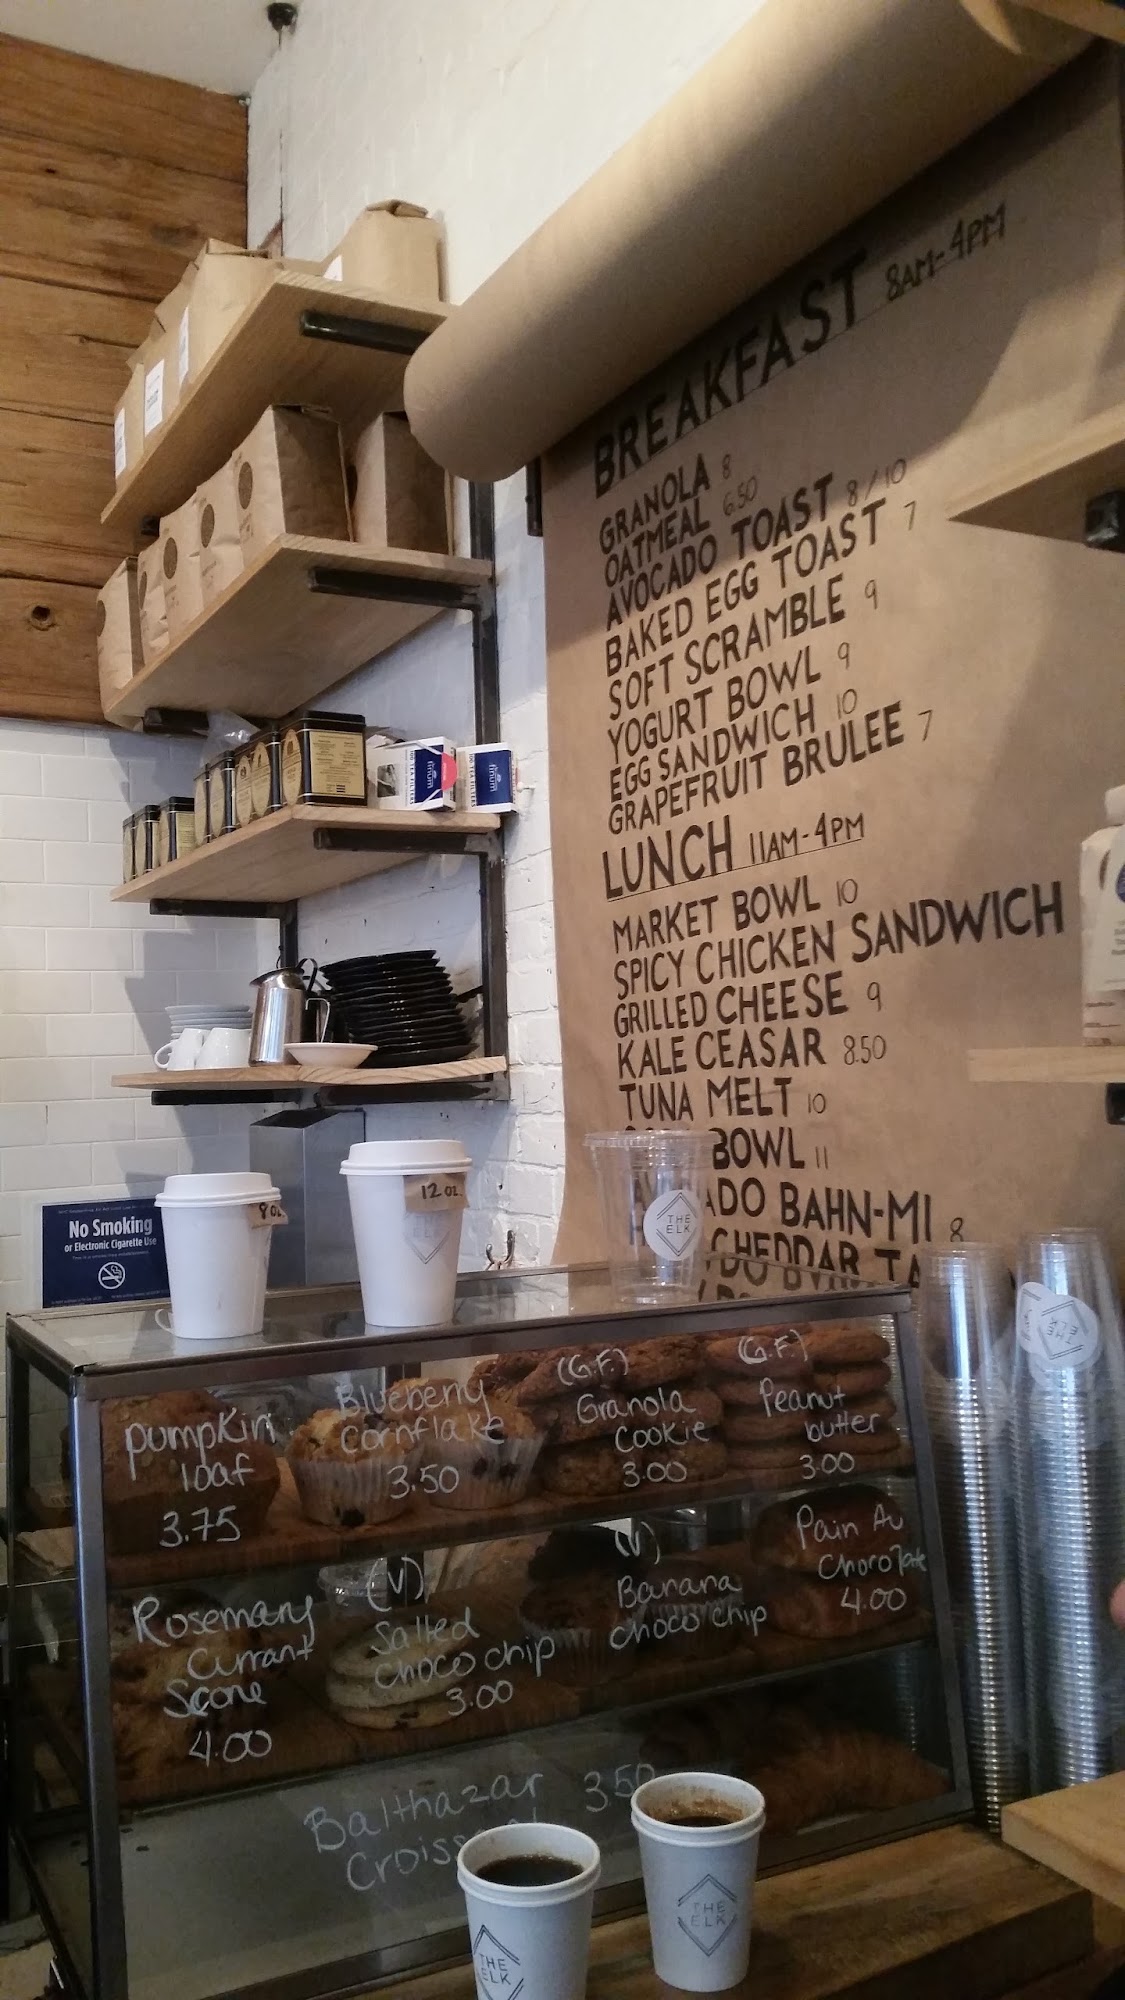 BREAKFAST 8AM-4PM
GRANOLA 8
OATMEAL 6.50
AVOCADO TOAST 8/10
BAKED EGG TOAST 7
SOFT SCRAMBLE 9
YOGURT BOWL 9
EGG SANDWICH 10
GRAPEFRUIT BRULEE 7
LUNCH 11AM-4PM
MARKET BOWL 10
SPICY CHICKEN SANDWICH
GRILLED CHEESE 9
KALE CEASAR 8.50
TUNA MELT 10
BOWL 11
BAHN-MI 8
CHEDDAR
finum
100 TEA FILTERS
finum
100 TEA FILTERS
No Smoking
or Electronic Cigarette Use
8 oz.
12 oz.
THE
ELK
THE
ELK
pumpkin
loaf
3.75
Blueberry
cornflake
3.50
(G.F.)
Granola
cookie
3.00
(G.F.)
Peanut
butter
3.00
Rosemary
Currant
Scone
4.00
(V)
Salted
choco chip
3.00
(V)
Banana
choco chip
Pain Au
Chocolate
4.00
Balthazar 3.50
THE
ELK
THE
ELK